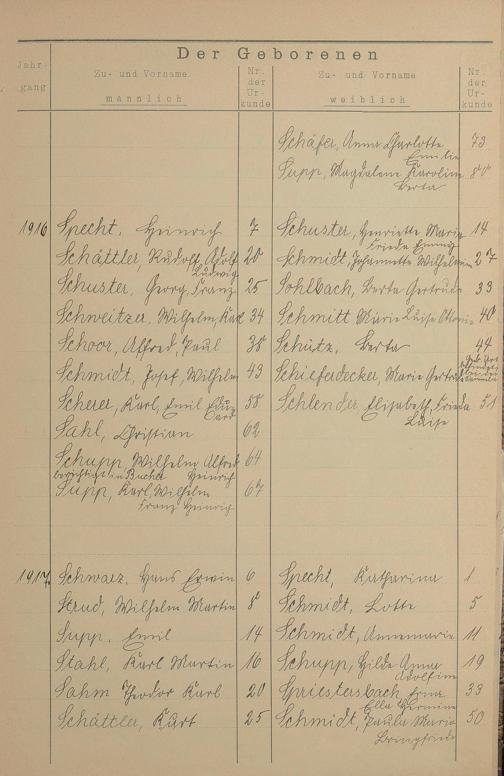 Der Geborenen
Jahrgang
Zu- und Vorname
männlich
Nr. der Urkunde
Zu- und Vorname
weiblich
Nr. der Urkunde
Schäfer, Anna Charlotte 73
Emilie
Supp, Magdalene Karoline 80
Berta
1916 Specht, Heinrich 7 Schuster, Henriette Marie 14
Frieda Emmy
Schättler, Rudolf, Adolf 20 Schmidt, Johannette Wilhelmine 27
Ludwig
Schuster, Georg, Franz 25 Sohlbach, Berta Gertrude 33
Schweitzer, Wilhelm, Karl 34 Schmitt Marie Luise 40
Schoor, Alfred, Paul 38 Schütz, Berta 44
Schmidt, Josef, Wilhelm 43 Schieferdecker, Marie Gertrude
Scherer, Karl, Emil Eduard 58 Schlender Elisabeth, Frieda 51
Luise
Sahl, Christian 62
Schupp, Wilhelm Alfred 64
Heinrich
Supp, Karl, Wilhelm 67
Franz Heinrich
1917. Schwarz, Hans Erwin 6 Specht, Katharina 1
Strud, Wilhelm Martin 8 Schmidt, Lotte 5
Supp. Emil 14 Schmidt, Annemarie 11
Stahl, Karl Martin 16 Schupp, Hilda Anna 19
Adolfine
Sahm Theodor Karl 20 Spriestersbach, Erna 33
Ella Hermine
Schättler, Kurt 25 Schmidt, Paula Marie 50